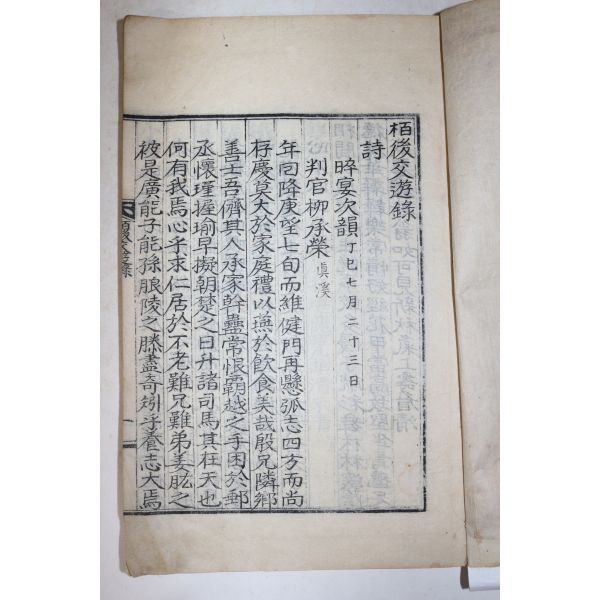 栢後交遊錄
詩
晬宴次韻 丁巳七月二十三日
判官柳承榮 眞溪
年回降庚望七旬而維健門再懸弧志四方而尚
存慶莫大於家庭禮以燕於飮食美哉殷兄隣鄉
善士吾儕其人承家幹蠱常恨霸越之手困於郵
丞懷瑾握瑜早擬朝楚之日升諸司馬其在天也
何有我焉心乎求仁居於不老難兄難弟姜肱之
被是廣能子能孫 之滕盡奇矧乎養志大焉